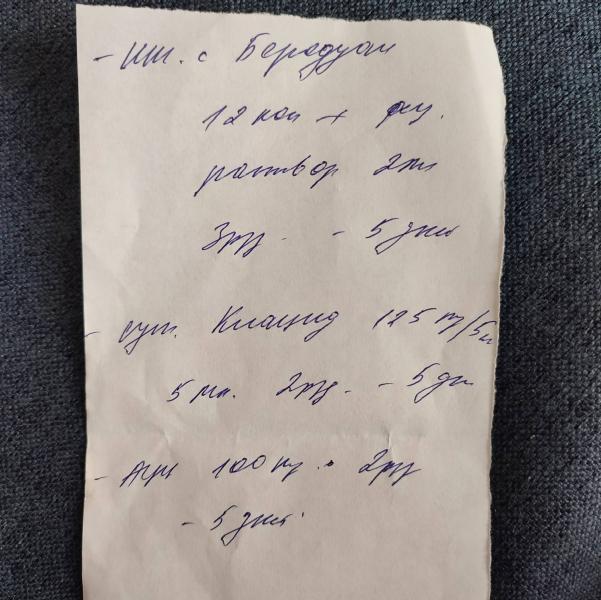 - инг. с Беродуал
12 кап + физ.
раствор 2мл
3рд. - 5 дней
- сусп. Клацид 125 мг/5мл
5 мл. 2рд. - 5 дн
- АЦЦ 100 мг. 2рд
- 5 дней.